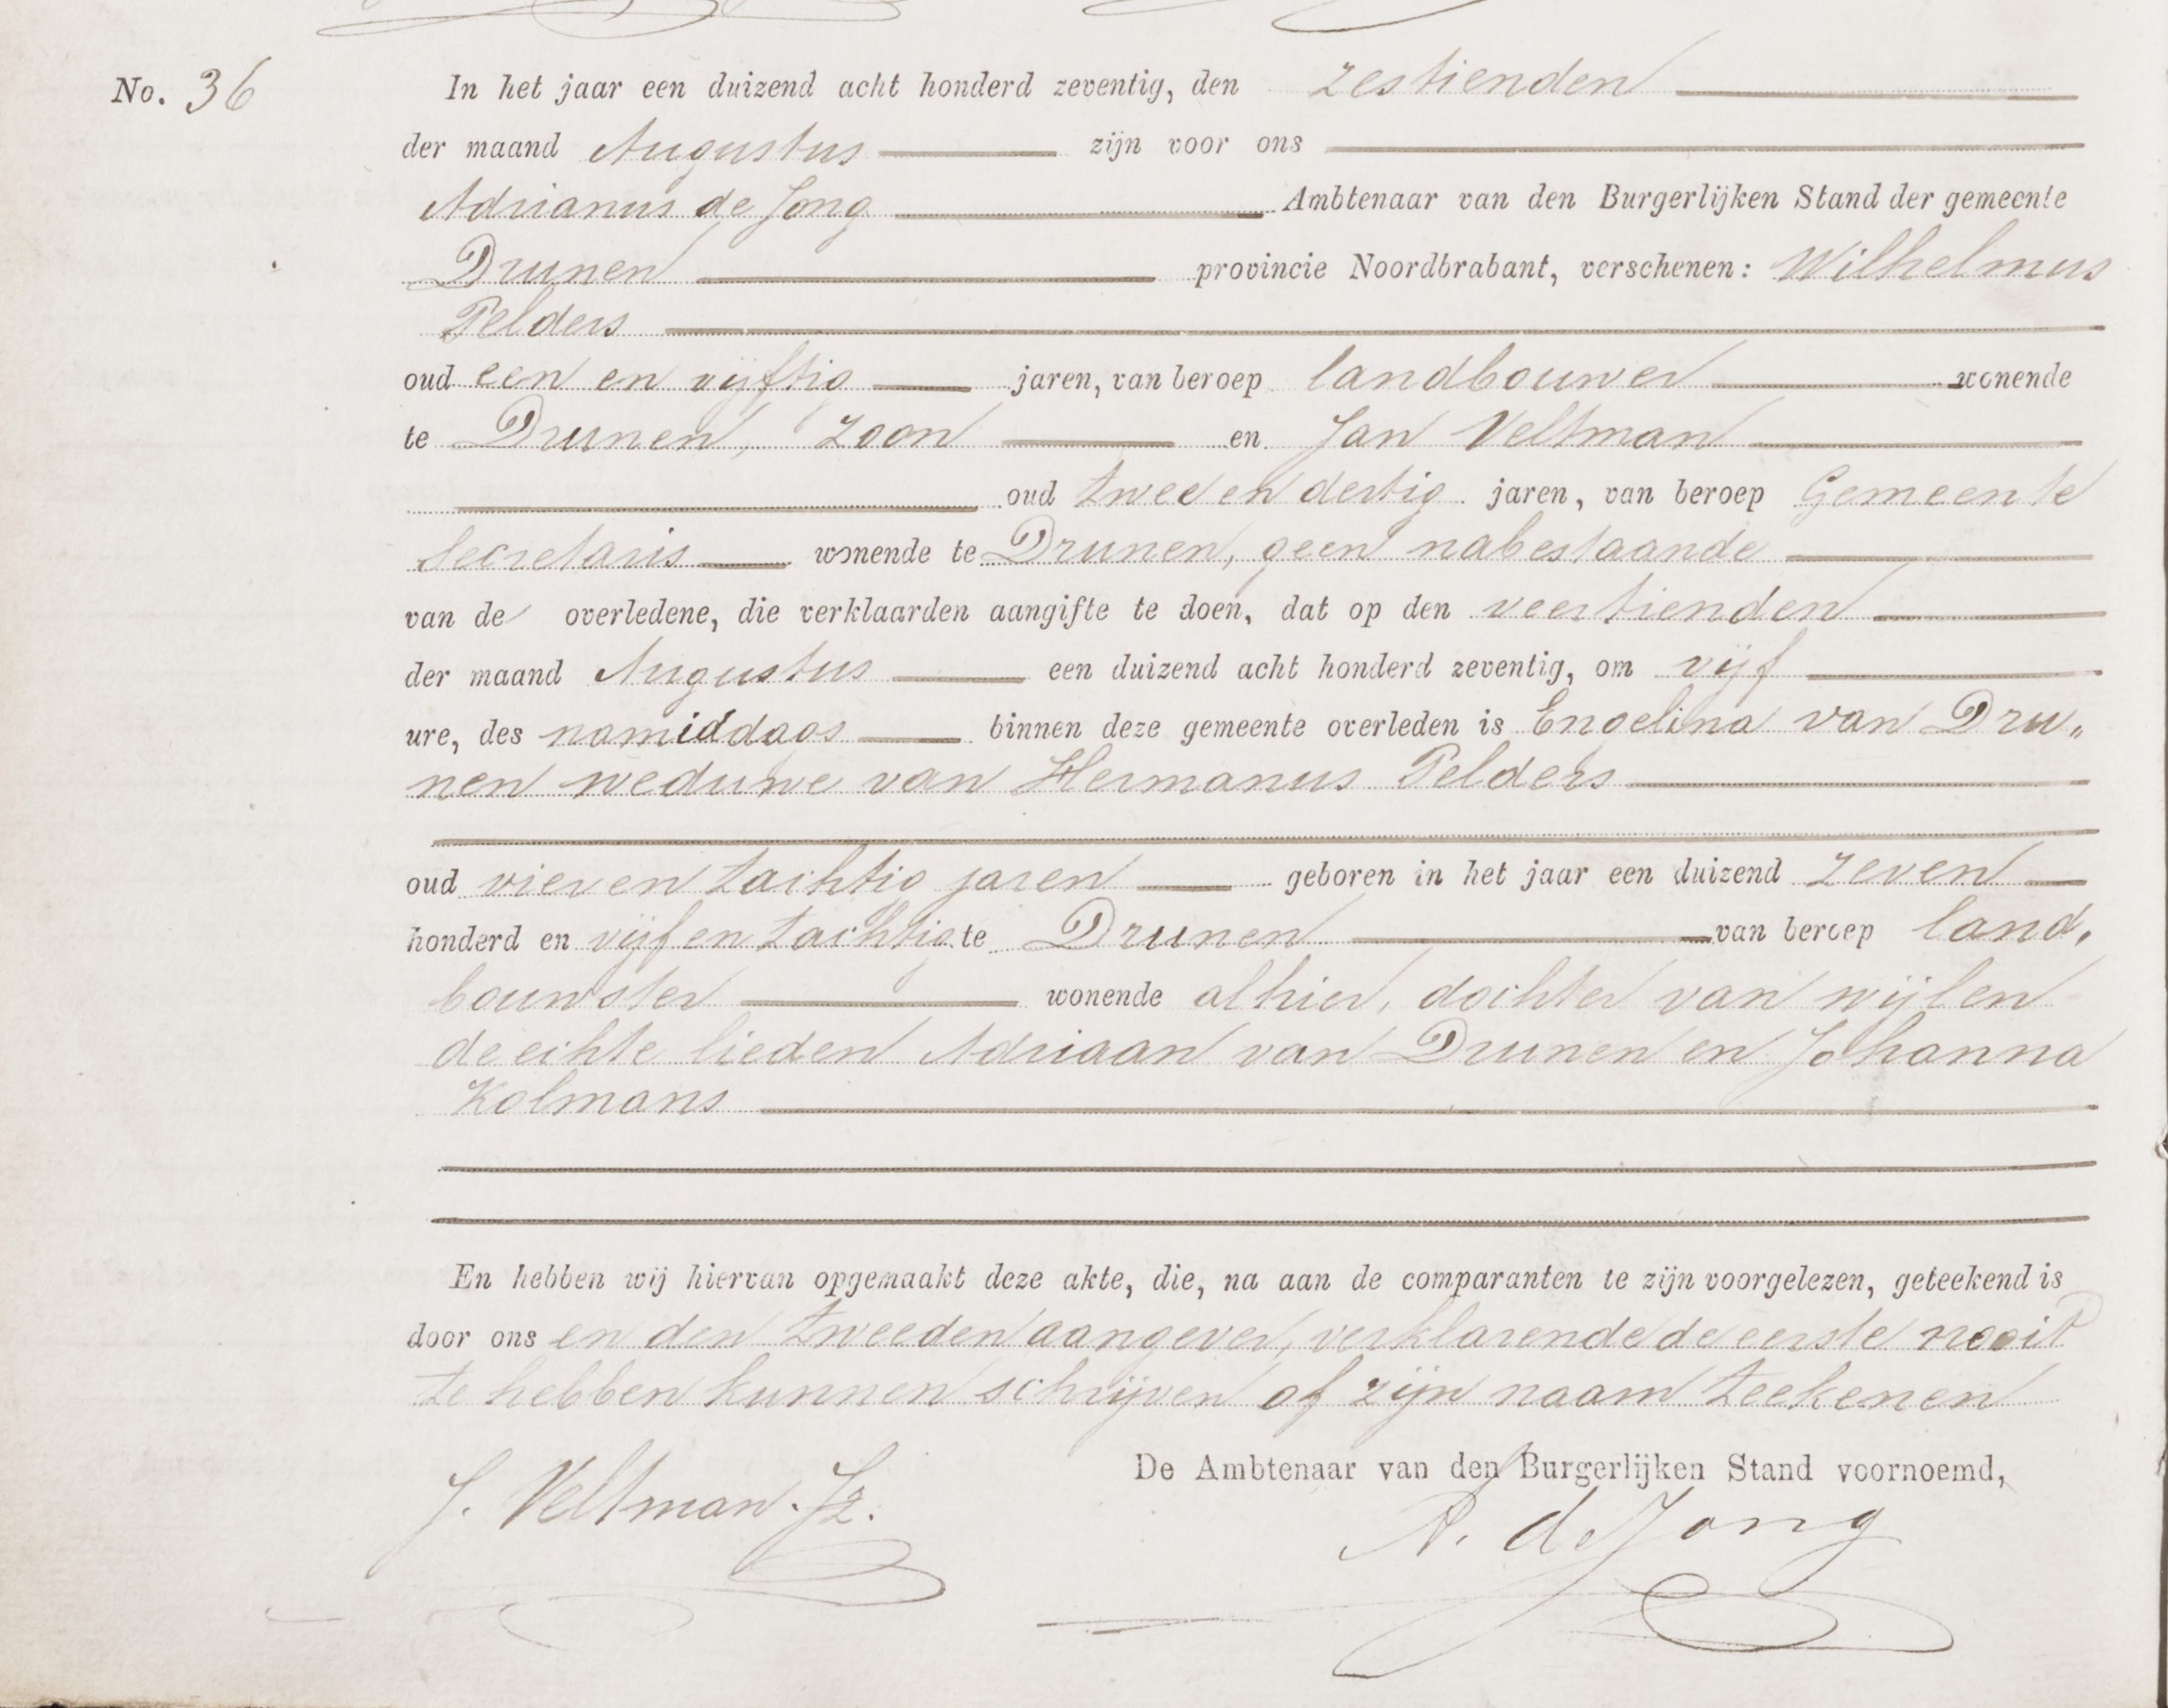 No. 36 In het jaar een duizend acht honderd zeventig, den zestienden
der maand Augustus zijn voor ons
Adrianus de Jong Ambtenaar van den Burgerlijken Stand der gemeente
Drunen provincie Noordbrabant, verschenen: Wilhelmus
Pelders
oud een en vijftig jaren, van beroep landbouwer wonende
te Drunen, zoon en Jan Veltman
oud twee en dertig jaren, van beroep Gemeente
Secretaris wonende te Drunen, geen nabestaande
van de overledene, die verklaarden aangifte te doen, dat op den veertienden
der maand Augustus een duizend acht honderd zeventig, om vijf
ure, des namiddags binnen deze gemeente overleden is Engelina van Dru„
nen weduwe van Hermanus Pelders
oud vier en tachtig jaren geboren in het jaar een duizend zeven
honderd en vijf en tachtig te Drunen van beroep land,
bouwster wonende alhier, dochter van wijlen
de echte lieden Adriaan van Drunen en Johanna
Kolmans
En hebben wij hiervan opgemaakt deze akte, die, na aan de comparanten te zijn voorgelezen, geteekend is
door ons en den tweeden aangever, verklarende de eerste nooit
te hebben kunnen schrijven of zijn naam teekenen
De Ambtenaar van den Burgerlijken Stand voornoemd,
J. Veltman. Jz. A. d Jong